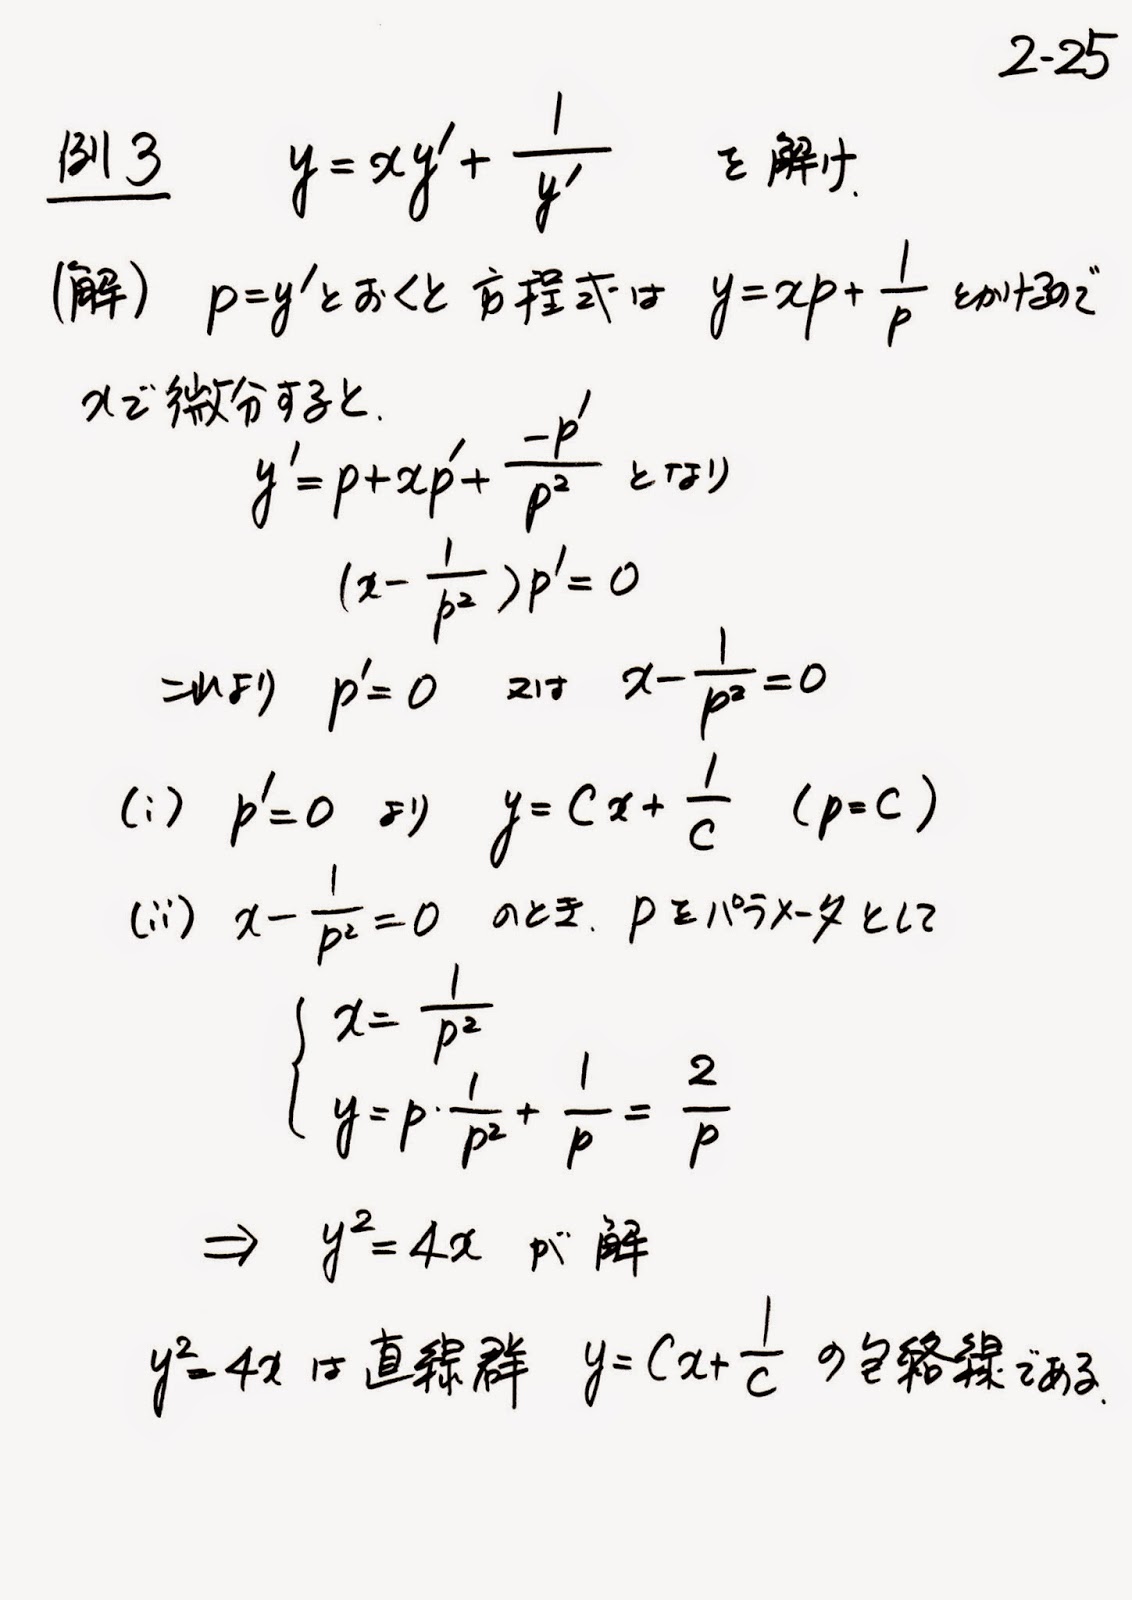 2-25
例3 y = xy' + 1/y' を解け.
(解) p=y'とおくと方程式は y=xp+1/p とかけるので
xで微分すると.
y'=p+xp'+(-p')/p² となり
(x-1/p²)p'=0
これより p'=0 又は x-1/p²=0
(i) p'=0 より y=Cx+1/C (p=C)
(ii) x-1/p²=0 のとき. pをパラメータとして
{ x=1/p²
y=p·1/p²+1/p=2/p
⇒ y²=4x が解
y²=4x は直線群 y=Cx+1/C の包絡線である.